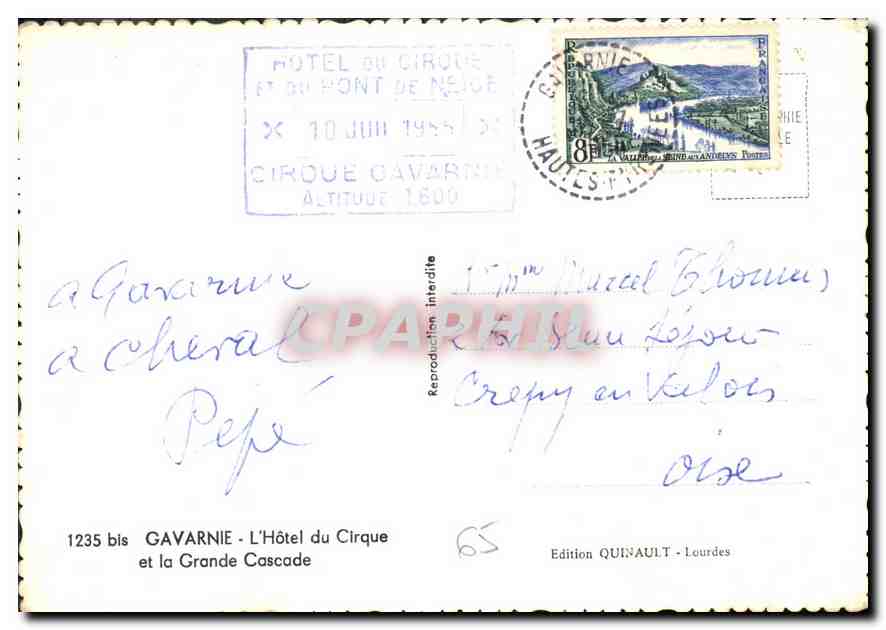 HOTEL DU CIRQUE
ET DU PONT DE NEIGE
10 JUIL 1955
CIRQUE GAVARNIE
ALTITUDE 1.600
GAVARNIE
HAUTES-PYRENEES
REPUBLIQUE
FRANCAISE
8F
LA VALLEE DE LA SEINE AUX ANDELYS POSTES
a Gavarnie
a cheval
Pépé
Reproduction interdite
Mme Marcel Thomas
Séjour
Crepy en Valois
Oise
CPAPHIL
1235 bis GAVARNIE - L'Hôtel du Cirque
et la Grande Cascade
65
Edition QUINAULT - Lourdes